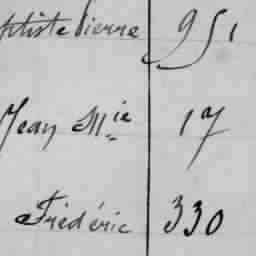 ptiste Pierre 951
Jean M.ie 17
Frédéric 330